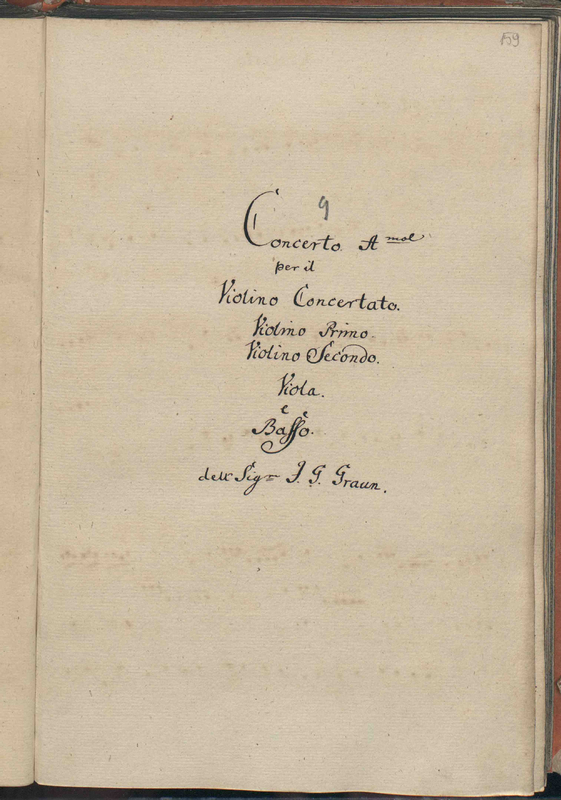 159
9
Concerto A mol
per il
Violino Concertato.
Violino Primo
Violino Secondo.
Viola.
e
Basso.
dell Sigr J. G. Graun.